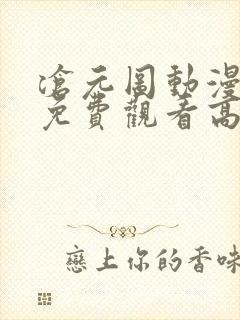 滄元圖動漫
免費觀看高
戀上你的香味